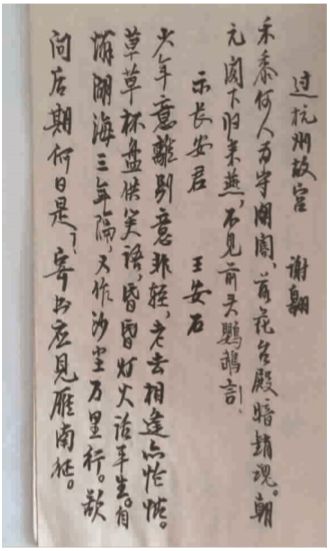 过杭州故宫　谢翱
禾黍何人为守阍阁，落花台殿暗销魂。朝
元阁下归来燕，不见前头鹦鹉言！
示长安君　王安石
少年意离别意非轻，老去相逢亦怆情。
草草杯盘供笑语，昏昏灯火话平生。自
怜湖海三年隔，又作沙尘万里行。欲
问后期何日是？寄书应见雁南征。